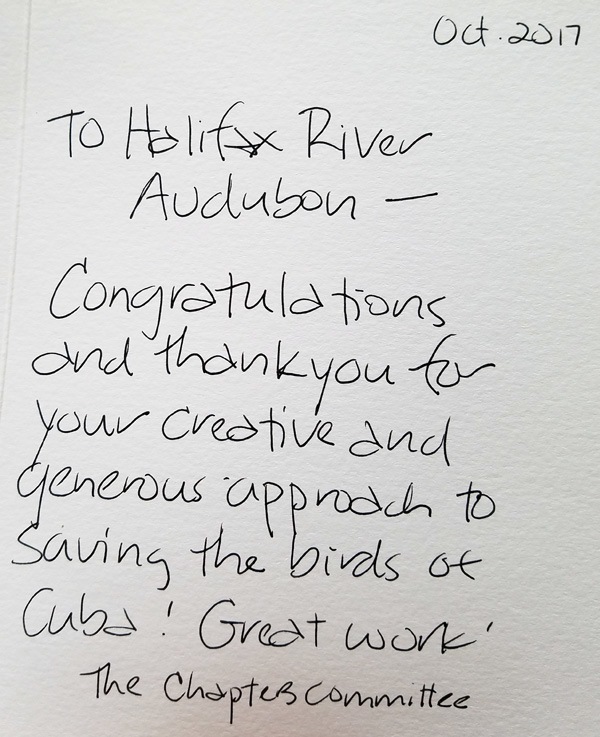 Oct. 2017
To Halifax River
Audubon —
Congratulations
and thank you for
your creative and
generous approach to
saving the birds of
Cuba! Great work!
The Chapters Committee